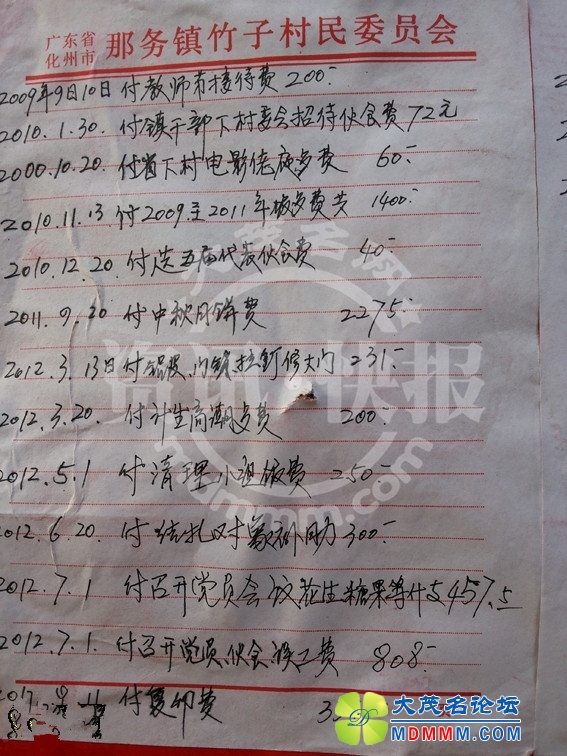 广东省
化州市 那务镇竹子村民委员会
2009年9月10日 付教师节接待费 200-
2010.1.30. 付镇干部下村委会招待伙食费 72元
2000.10.20. 付 下村电影 费 60-
2010.11.13 付2009至2011年 费共 1400-
2010.12.20. 付选五届代表伙食费 40-
2011.9.30 付中秋月饼费 2275-
2012.3.13日 付 门锁,拉钉修大门 231-
2012.3.20. 付计生高潮 费 200-
2012.5.1 付清理小组饭费 250-
2012.6.20. 付结扎对象补助 300-
2012.7.1 付召开党员会议花生糖果等什支 457.5
2012.7.1. 付召开党员伙会 工费 808-
付复印费
大茂名网
资讯快报
大茂名论坛
MDMMM.COM